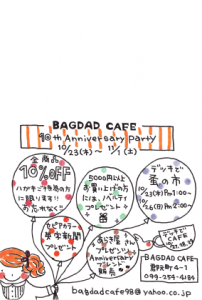 BAGDAD CAFE
10th Anniversary Party
10/23(木)～11/1(土)
全商品
10%OFF
ハガキご持参の方
に限ります!!
お忘れなく
5000円以上
お買い上げの方
には、ノベルティ
プレゼント
デッキで
蚤の市
10/23(木)PM1:00～
10/26(日)PM2:00～
セピアカラー
英字新聞
プレゼント
さんの
プレゼント
Anniversary
ブレンド
販売
デッキで
CAFE
BAGDAD CAFE
4-1
bagdadcafe98@yahoo.co.jp